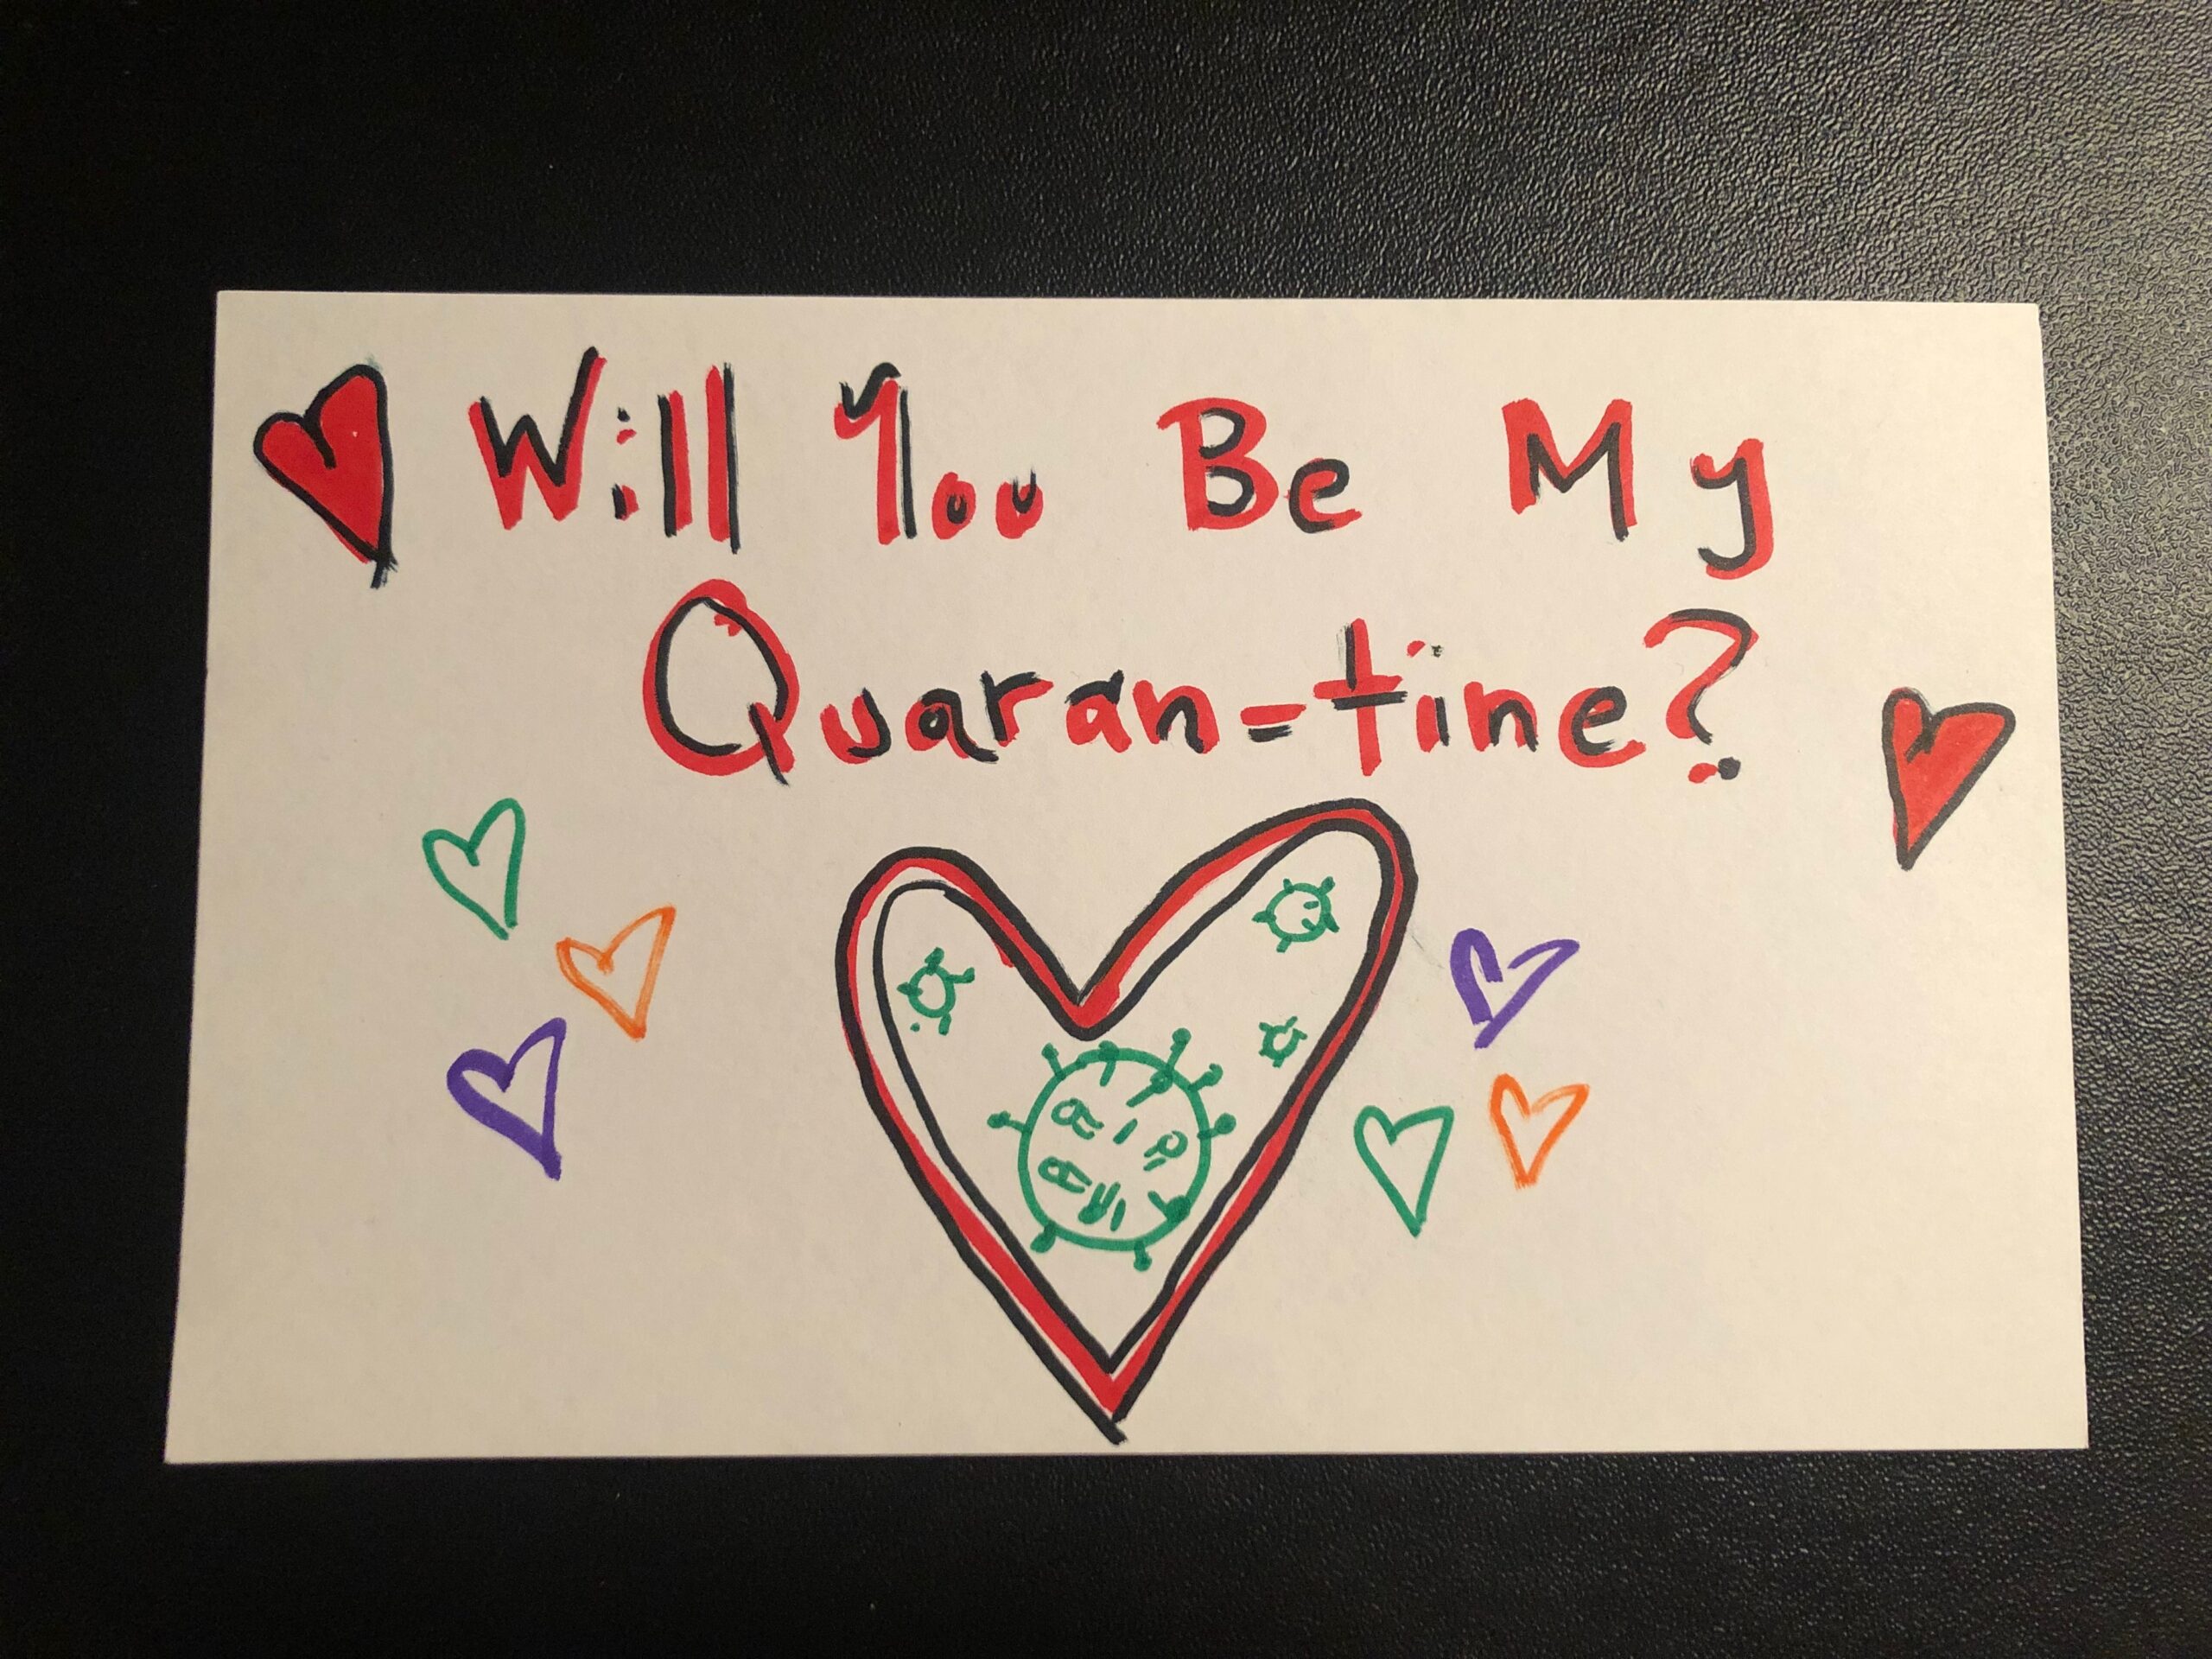 Will You Be My
Quaran-tine?